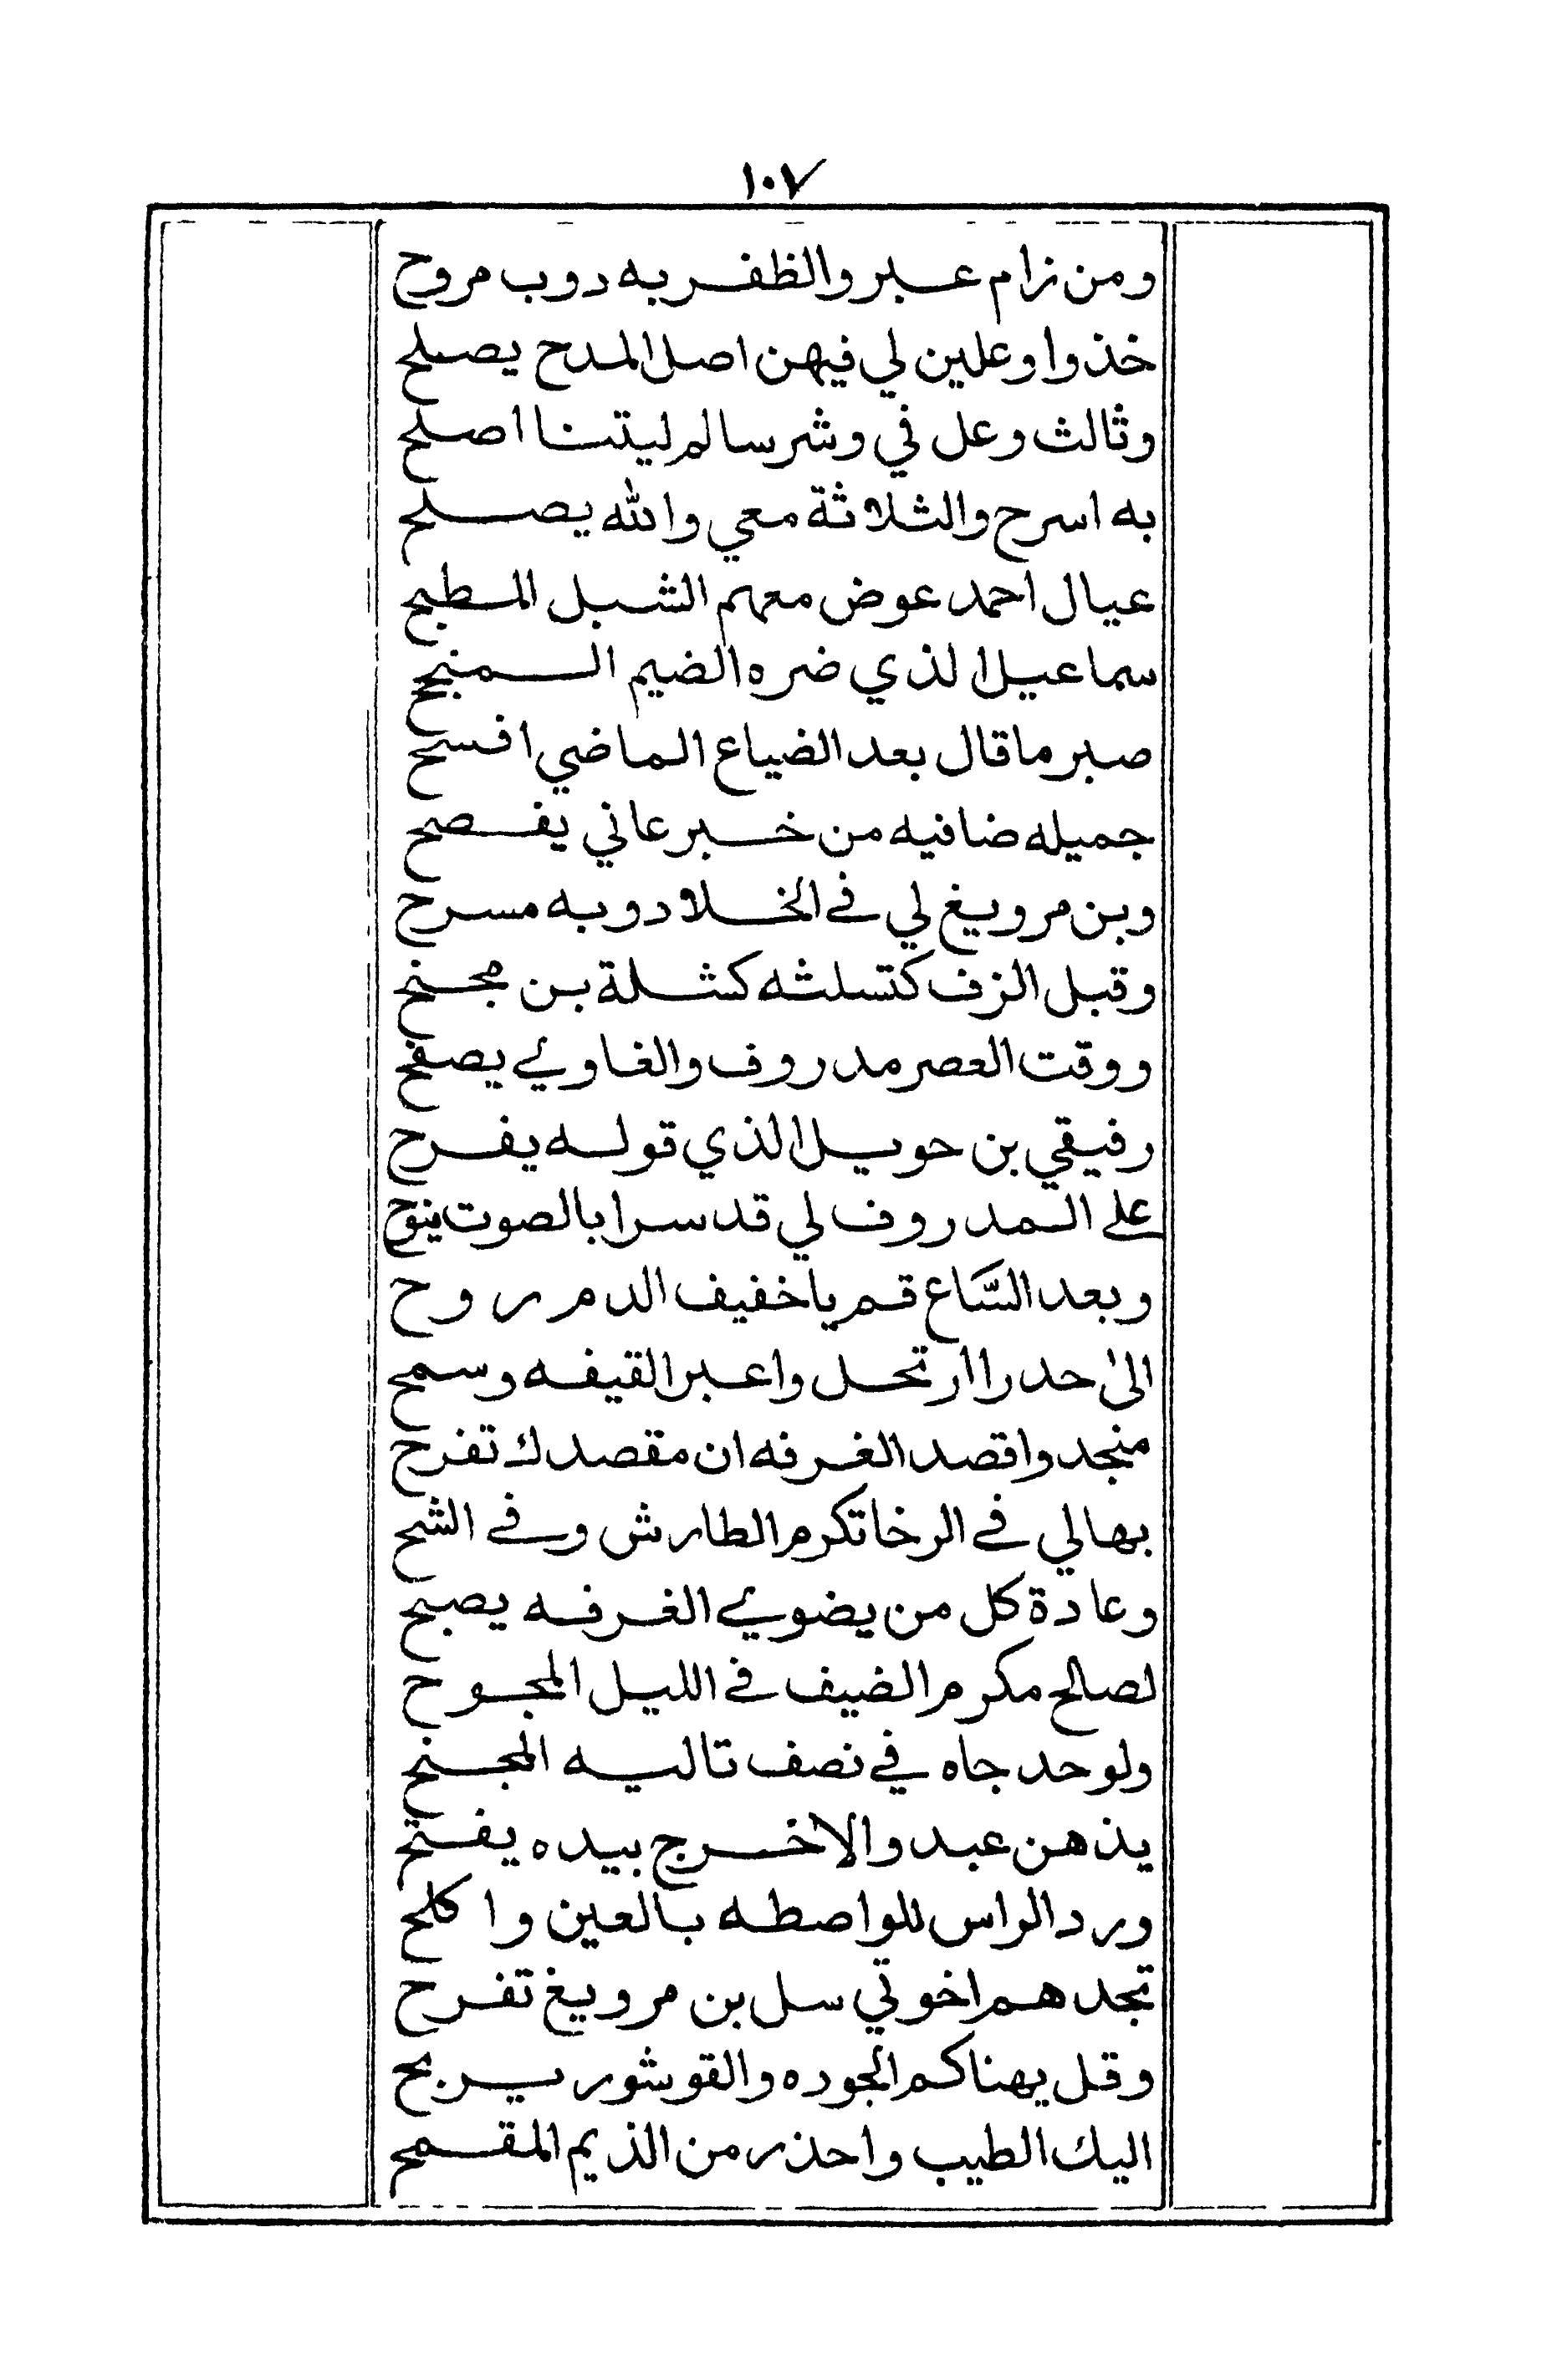 ١٠٧
ومن زام عبر والظفر به دوب مروح
خذوا وعلين لي فيهن اصل المدح يصلح
وثالث وعل في وشر سالم ليتنا اصلح
به اسرح والثلاثة معي والله يصلح
عيال احمد عوض معهم الشبل المسطبح
سماعيل الذي ضره الضيم المنبح
صبر ما قال بعد الضياع الماضي افسح
جميله ضافيه من خبر عاني يفصح
وبن مرويغ لي في الخلا دوبه مسرح
وقبل الزف كتسلثه كشلة بن مجنح
ووقت العصر مدروف والغاوي يصفح
رفيقي بن حويل الذي قوله يفرح
على المدروف لي قد سرا بالصوت ينوح
وبعد السَّاع قم يا خفيف الدم روح
الى حدرا ارتحل واعبر القيفه وسمح
منجد واقصد الغرفه ان مقصدك تفرح
بها لي في الرخا تكرم الطارش وفي الشح
وعادة كل من يضوي الغرفه يصبح
لصالح مكرم الضيف في الليل المجوح
ولو حد جاه في نصف تاليه المجنح
يذهن عبد والا خرج بيده يفتح
ورد الراس للواصطه بالعين واكلح
تجدهم اخوتي سل بن مرويغ تفرح
وقل يهناكم الجوده والقوشور يربح
اليك الطيب واحذر من الذيم المقمح